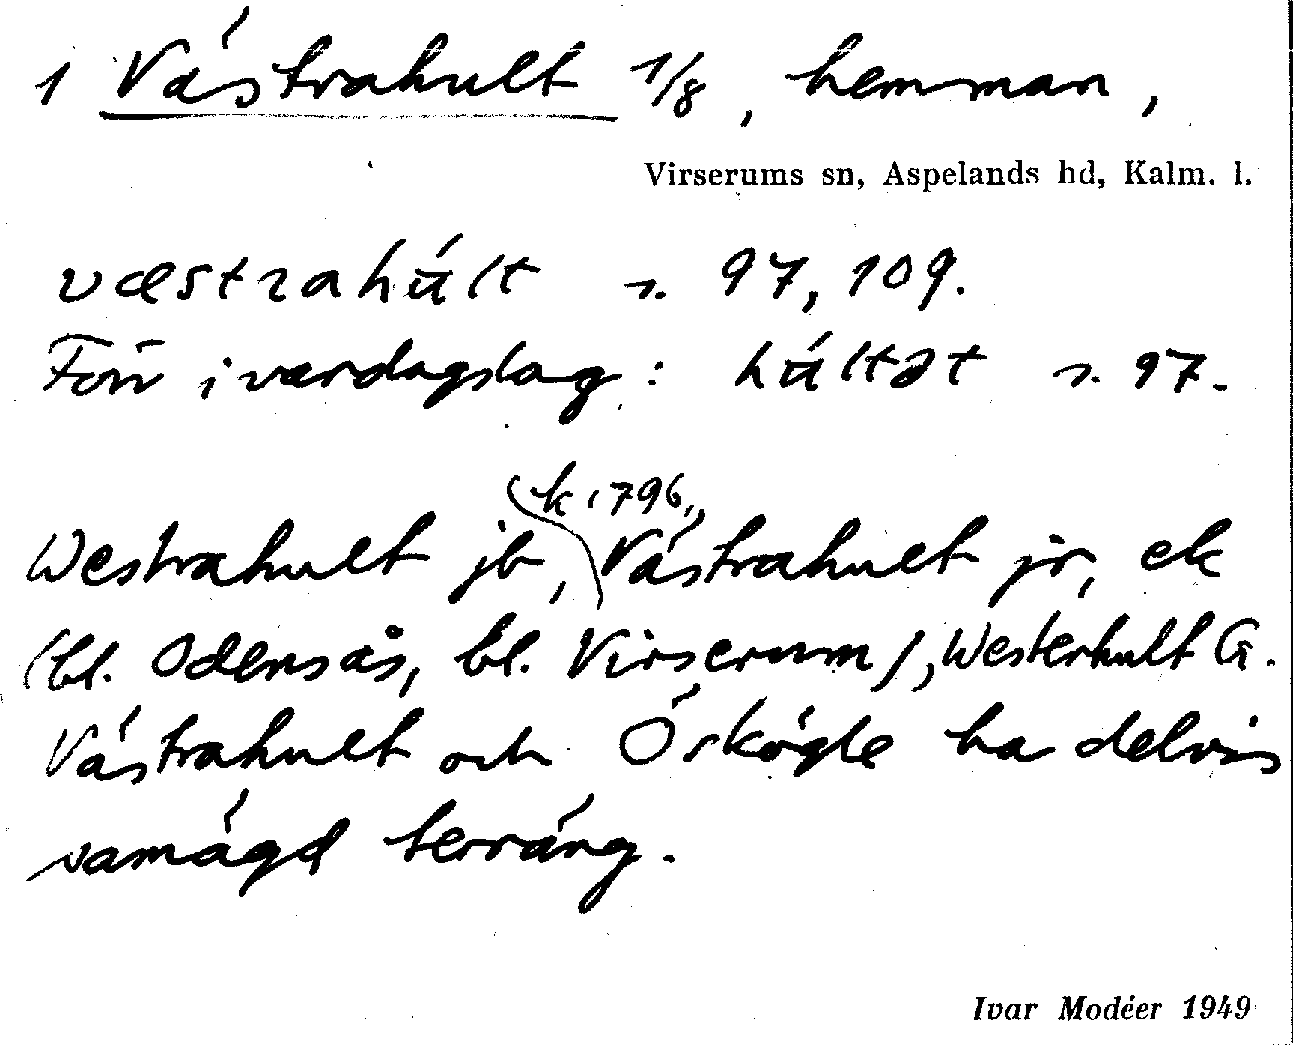 1 Västrahult 1/8, hemman,
Virserums sn, Aspelands hd, Kalm. l.
væstrahúlt s. 97, 109.
Förr i vardagslag: húltət s. 97.
k 1796,
Westrahult jb, Västrahult jr, ek
(bl. Odensås, bl. Virserum), Westerhult G.
Västrahult och Öskögle ha delvis
samägd terräng.
Ivar Modéer 1949